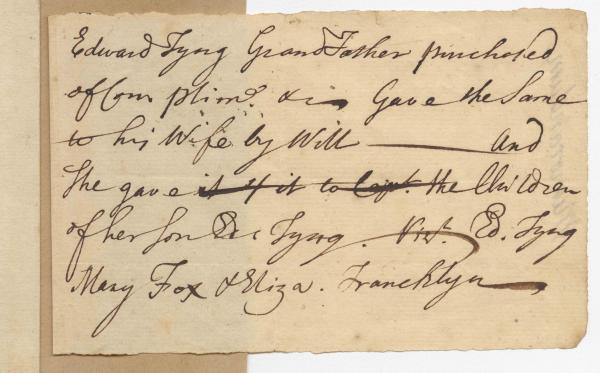 Edward Tyng GrandFather purchased
of Com plimo. &c Gave the Same
to his Wife by Will — And
She gave it 4 it to Capt. the Children
of her Son Ed Tyng. Vizt. Ed. Tyng
Mary Fox & Eliza. Francklyn